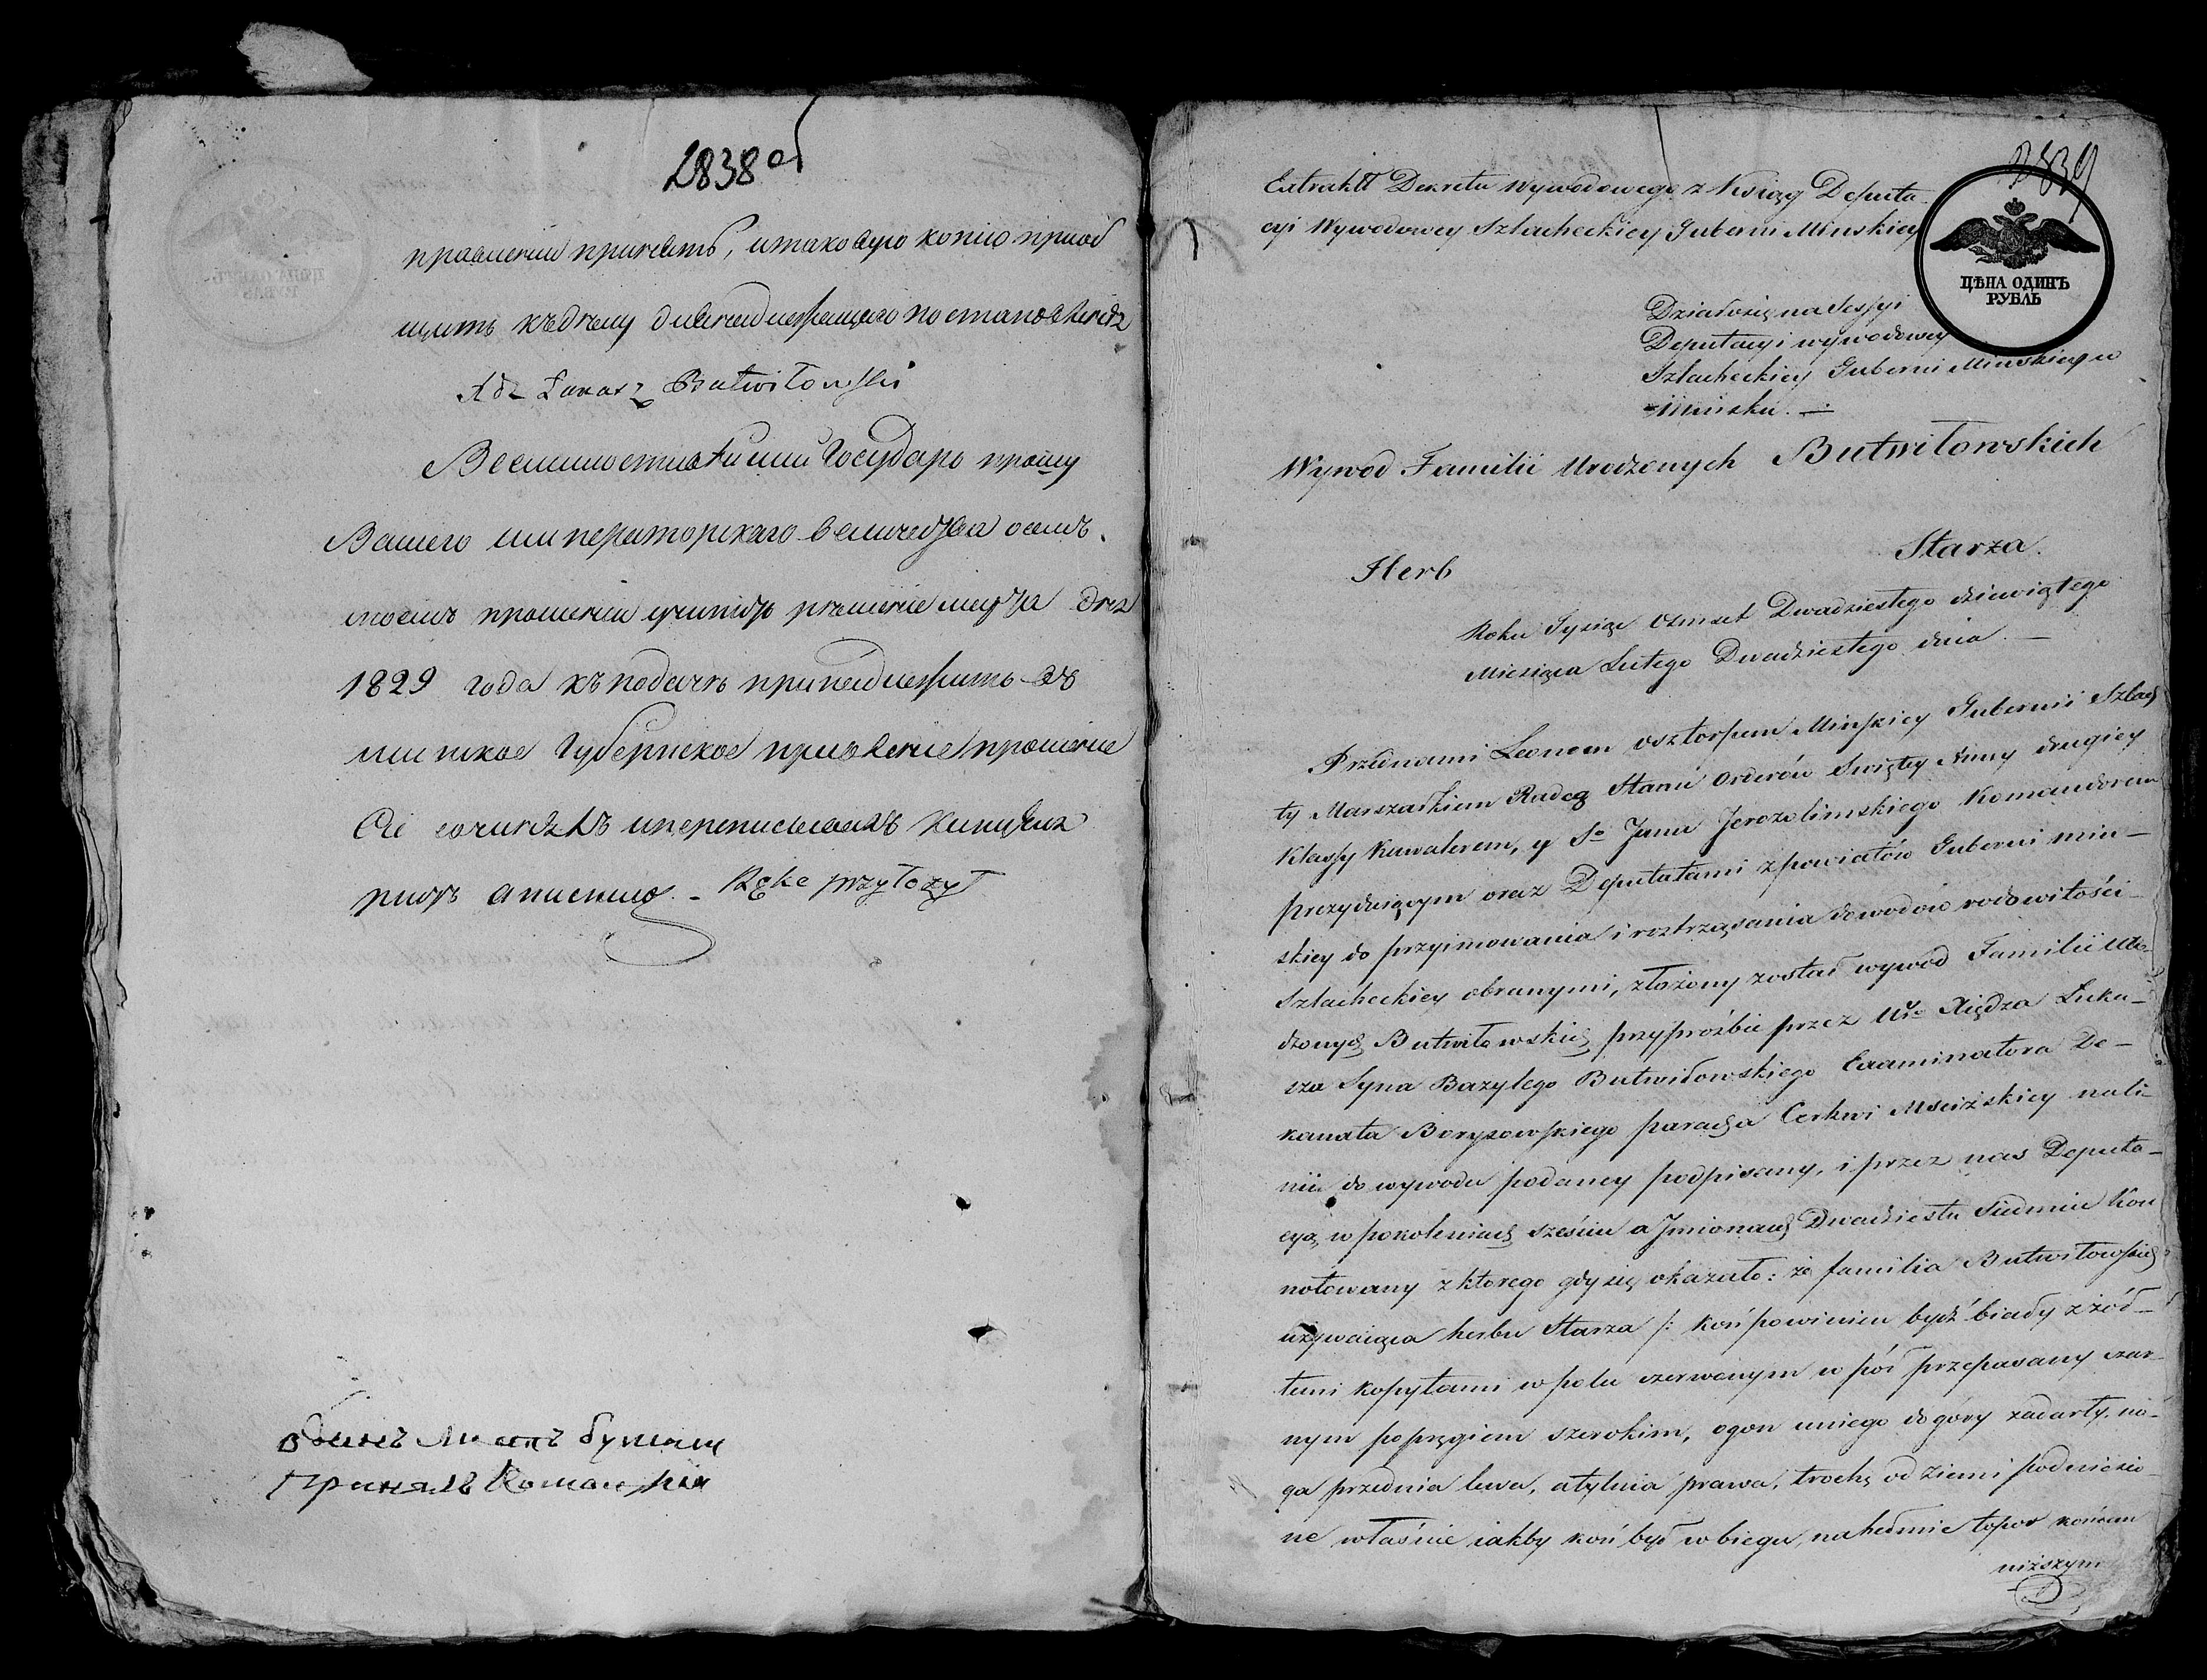 2838 об
правлении принять, и таковую копию приоб
щить къ делу для надлежащаго постановленія
Adz Łukasz Butwiłowski
Всемилостивейшии Государь прошу
Вашего императорскаго величества о семъ
моемъ прошении учинить решение марта дня
1829 года къ подаче принадлежитъ въ
минское Губернское правление прошение
Сие сочинялъ и переписывалъ
Rękę przyłożył
Принялъ
2839
Extrakt Dekretu Wywodowego z Xsiąg Deputa-
cyi Wywodowey Szlacheckiey Gubernii Minskiey
ЦѢНА ОДИНЪ
РУБЛЬ
Działosię na Sessyi
Deputacyi wywodowey
Szlacheckiey Gubernii Minskiey w
Minsku.
Wywod Familii Urodzonych Butwiłowskich
Herb Starza.
Roku Tysiąc Osmset Dwadziestego dziewiątego
Miesiąca Lutego Dwadziestego dnia. —
Przednami Leonem Osztorpem Minskiey Gubernii Szlach
ty Marszałkiem Radcą Stanu Orderów Swiętey Anny drugiey
Klassy Kawalerem, y Sº Jana Jerozolimskiego Komandorem
prezyduiącym oraz Deputatami z powiatów Guberni min-
skiey do przyimowania i roztrząsania dowodów rodowitości
Szlacheckiey obranymi, złożony został wywod Familii Uro-
dzonych Butwiłowskich przy proźbie przez Urº Xiędza Łuka-
sza Syna Bazylego Butwiłowskiego Examinatora De-
kanata Borysowskiego paracha Cerkwi Mscizskiey na li-
nii do wywodu podaney podpisany, i przez nas Deputa-
cyą w pokoleniach sześciu a Jmionach Dwadziestu Siedmiu Kon
notowany z ktorego gdy się okazało: że familia Butwiłowskich
używaiąca herbu Starza /: koń powinien bydź biały z żół-
temi kopytami w polu czerwonym w pół przepasany czar-
nym popręgiem szerokim, ogon u niego do góry zadarty, no-
ga przednia lewa, a tylnia prawa, trochę od ziemi podniesio-
ne właśnie iakby koń był w biegu, na hełmie topor końcem
niższym